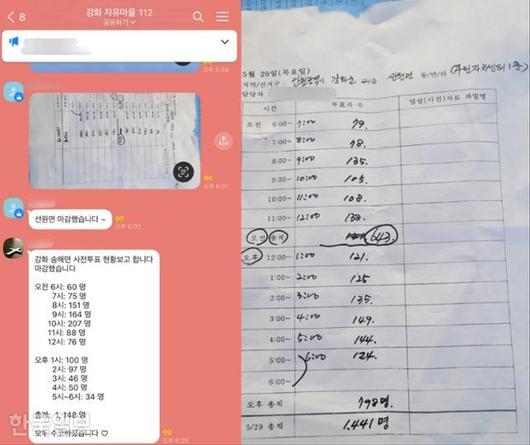 8
강화 자유마을 112
공유하기
오후 5:58
오후 6:01
선원면 마감했습니다 ~
95
오후 6:02
강화 송해면 사전투표 현황보고 합니다
마감했습니다
오전 6시: 60 명
7시: 75 명
8시: 151 명
9시: 164 명
10시: 207 명
11시: 88 명
12시: 76 명
오후 1시: 100 명
2시: 97 명
3시: 46 명
4시: 50 명
5시~6시: 34 명
총계: 1,148 명
모두 수고하셨습니다 ♡
95
한국일보
5월 29일(목요일)
지역/선거구: 인천광역시 강화군 선원면 동/면/리 (주민자치센터 1층)
담당자
시간 투표자 수 영상(사진)자료 파일명
오전 6:00~ 7:00 79.
7:00~ 8:00 78.
8:00~ 9:00 135.
9:00~ 10:00 105.
10:00~ 11:00 108.
11:00~ 12:00 138.
오전 총계 643.
오후 12:00~ 1:00 121.
1:00~ 2:00 125
2:00~ 3:00 135.
3:00~ 4:00 149.
4:00~ 5:00 144.
5:00~ 6:00 124.
6:00~
오후 총계 798명.
5/29 총계 1,441명